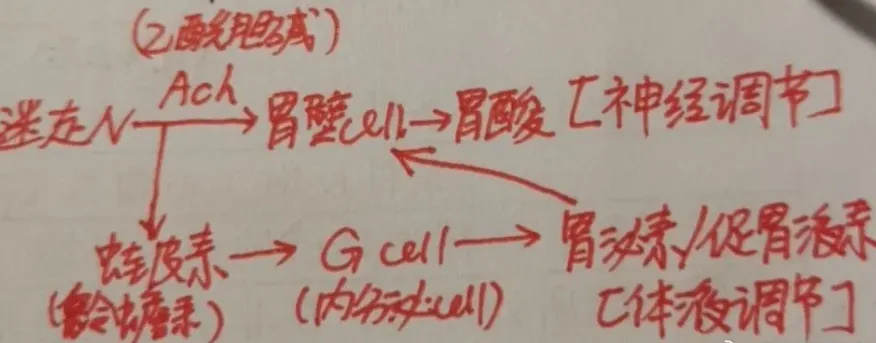 (乙酰胆碱)
Ach
迷走N → 胃壁cell → 胃酸 [神经调节]
蛙皮素 → G cell → 胃泌素/促胃液素
(内分泌cell) [体液调节]